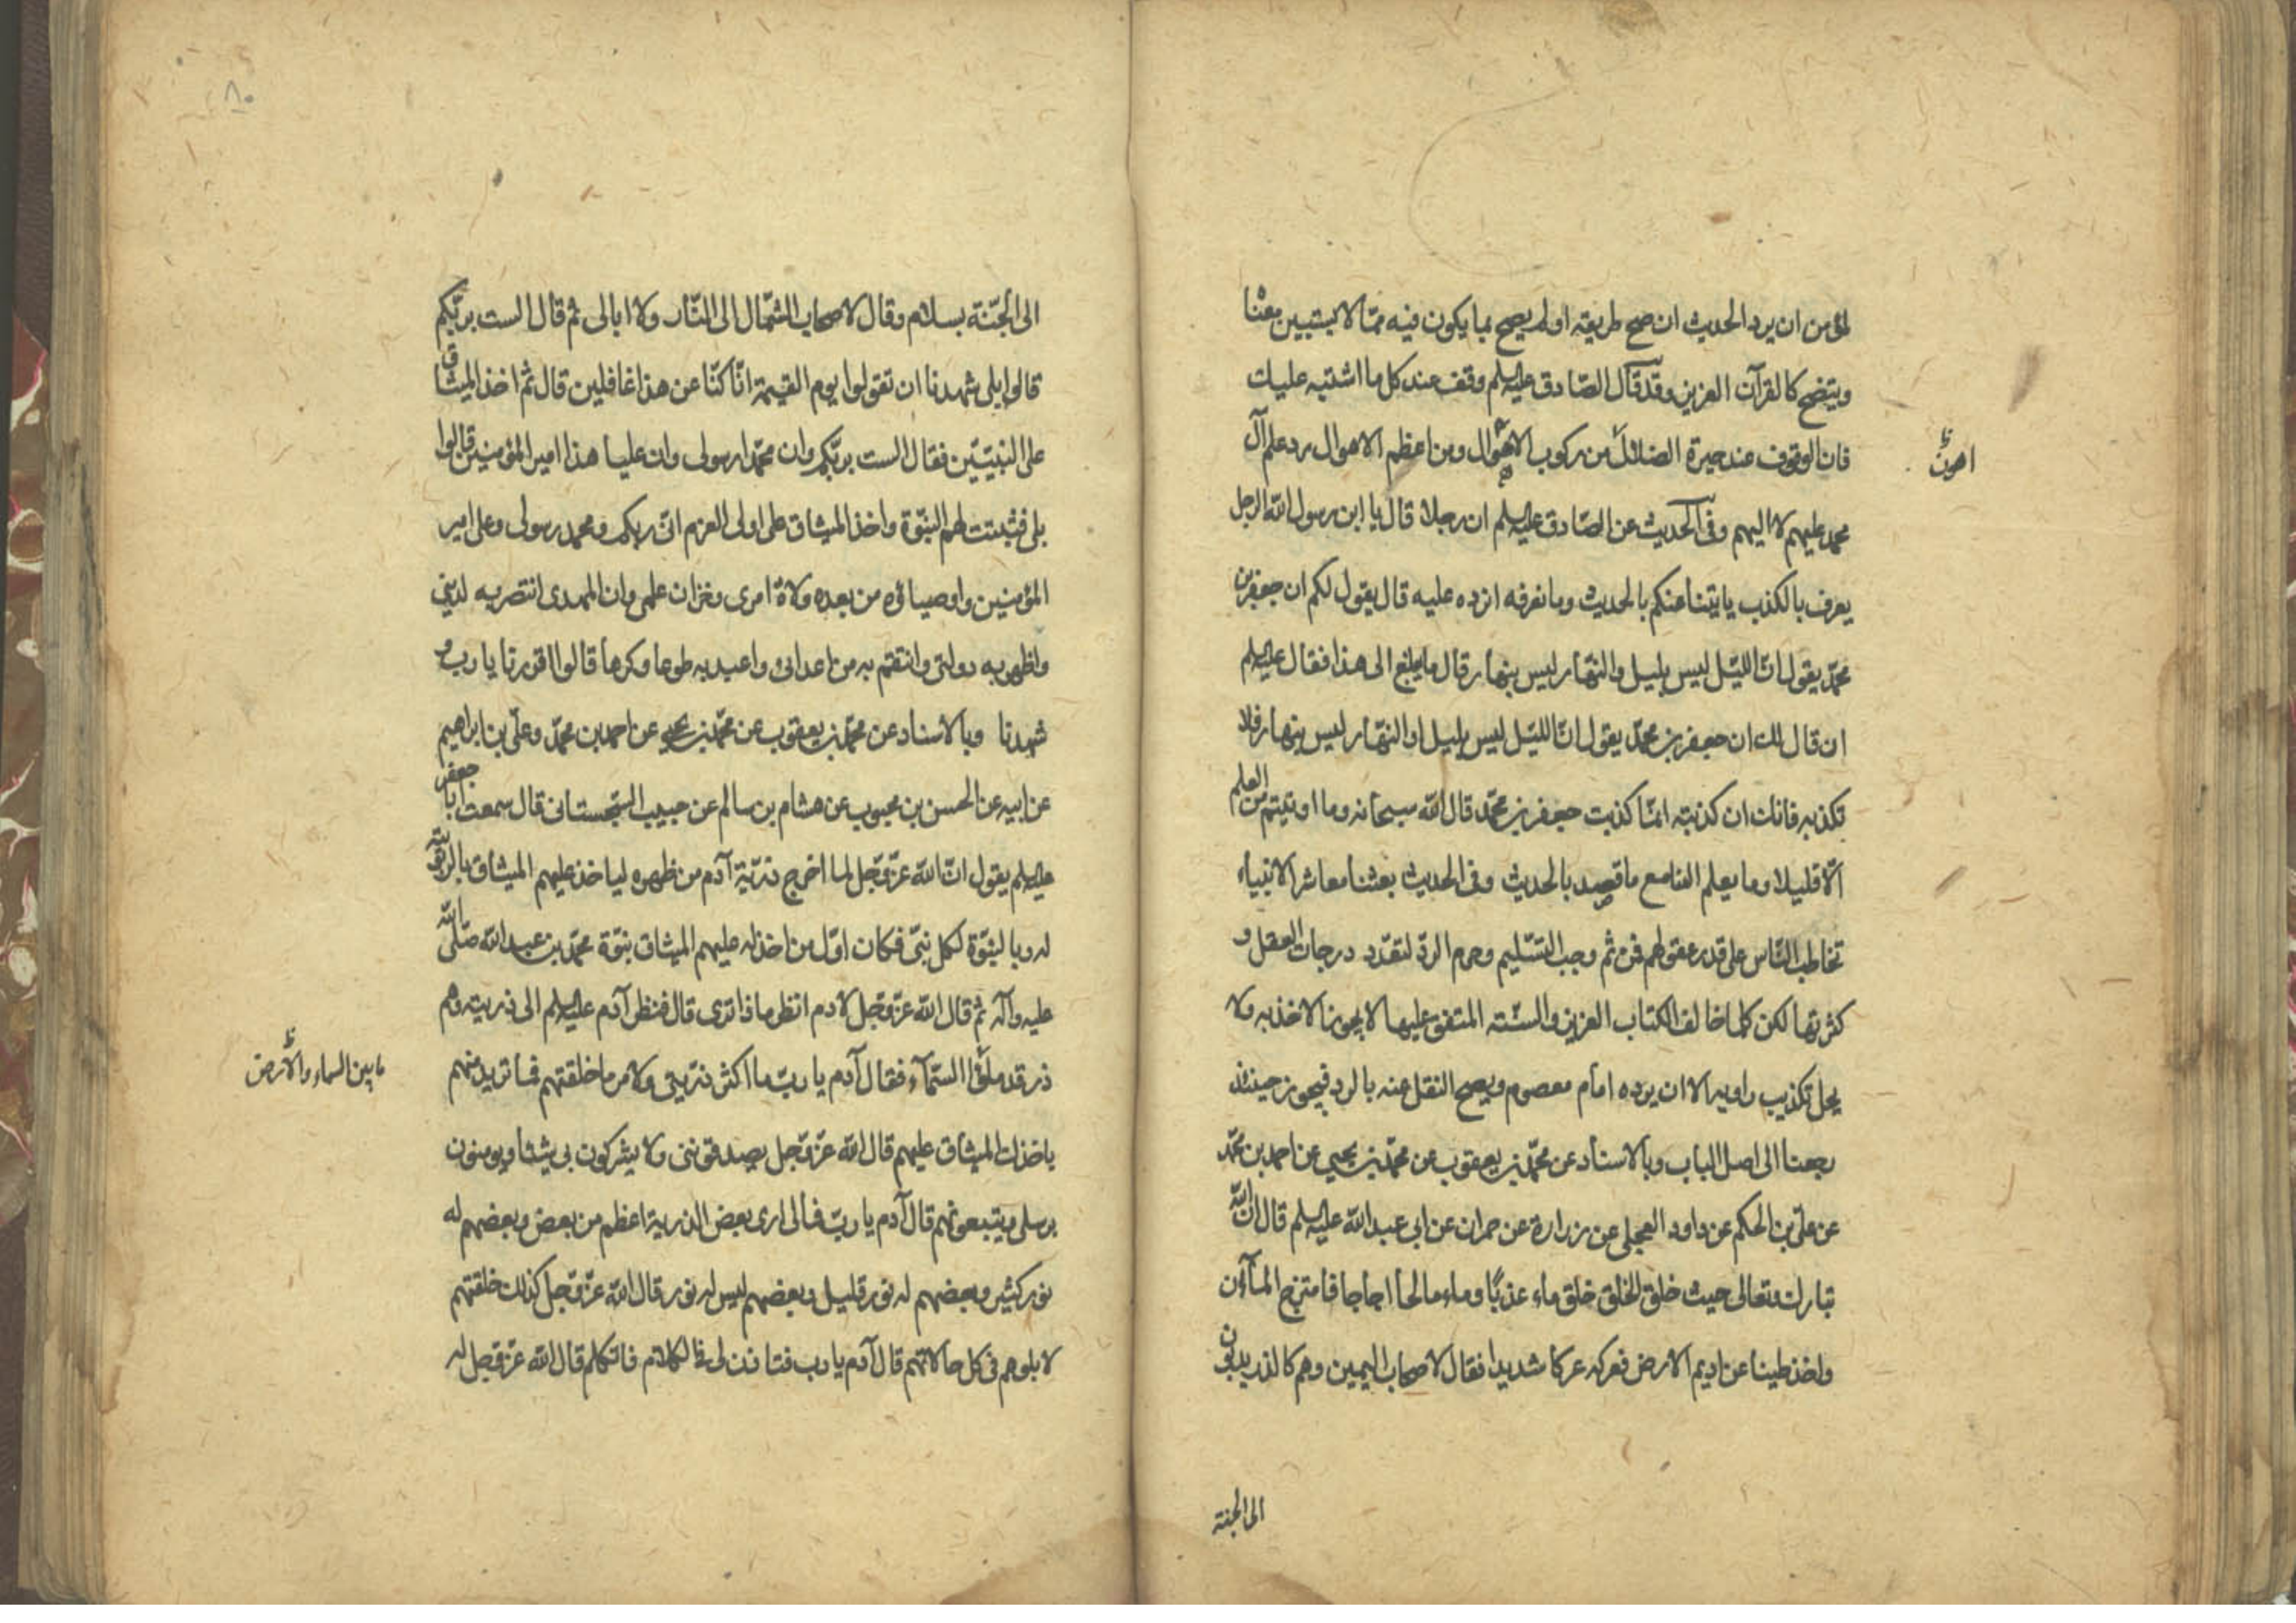 لمؤمن ان يرد الحديث ان صح طريقه او لم يصح بما يكون فيه مما لا يستبين معنا
ويتضح كالقرآن العزيز وقد قال الصادق عليه السلم وقف عند كل ما اشتبه عليك
فان الوقوف عند حيرة الضلال من ركوب الاهوال ومن اعظم الاهوال رد علم آل
اهون
محمد عليهم لا اليهم وفى الحديث عن الصادق عليه السلم ان رجلا قال يا ابن رسول الله الرجل
يعرف بالكذب ياتينا عنكم بالحديث وما نعرفه انرده عليه قال يقول لكم ان جعفر بن
محمد يقول ان الليل ليس بليل والنهار ليس بنهار قال ما يبلغ الى هذا فقال عليه السلم
ان قال لك ان جعفر بن محمد يقول ان الليل ليس بليل او النهار ليس بنهار فلا
تكذبه فانك ان كذبته انما كذبت جعفر بن محمد قال الله سبحانه وما اوتيتم من العلم
الا قليلا وما يعلم السامع ما قصد بالحديث وفى الحديث بعثنا معاشر الانبياء
نخاطب الناس على قدر عقولهم فمن ثم وجب التسليم وحرم الرد لتعدد درجات العقل و
كثرتها لكن كلما خالف الكتاب العزيز والسنة المتفق عليها لا يجوز الاخذ به ولا
يحل تكذيب راويه الا ان يرده امام معصوم ويصح النقل عنه بالرد فيجوز حينئذ
رجعنا الى اصل الباب وبالاسناد عن محمد بن يعقوب عن محمد بن يحيى عن احمد بن محمد
عن على بن الحكم عن داود العجلى عن زرارة عن حمران عن ابى عبد الله عليه السلم قال ان الله
تبارك وتعالى حيث خلق الخلق خلق ماء عذبا وماء مالحا اجاجا فامتزج المآآن
واخذ طينا عن اديم الارض فعركه عركا شديدا فقال لاصحاب اليمين وهم كالذر يدبون
الى الجنة
٨٠
الى الجنة بسلام وقال لاصحاب الشمال الى النار ولا ابالى ثم قال الست بربكم
قالوا بلى شهدنا ان تقولوا يوم القيمة انا كنا عن هذا غافلين قال ثم اخذ الميثاق
على النبيين فقال الست بربكم وان محمدا رسولى وان عليا هذا امير المؤمنين قالوا
بلى فثبتت لهم النبوة واخذ الميثاق على اولى العزم انى ربكم ومحمد رسولى وعلى امير
المؤمنين واوصياؤه من بعده ولاة امرى وخزان علمى وان المهدى انتصر به لدينى
واظهر به دولتى وانتقم به من اعدائى واعبد به طوعا وكرها قالوا اقررنا يا رب و
شهدنا وبالاسناد عن محمد بن يعقوب عن محمد بن يحيى عن احمد بن محمد وعلى بن ابراهيم
عن ابيه عن الحسن بن محبوب عن هشام بن سالم عن حبيب السجستانى قال سمعت ابا جعفر
عليه السلم يقول ان الله عز وجل لما اخرج ذرية آدم من ظهره لياخذ عليهم الميثاق بالربوبية
له وبالنبوة لكل نبى فكان اول من اخذ له عليهم الميثاق بنبوة محمد بن عبد الله صلى الله
عليه وآله ثم قال الله عز وجل لادم انظر ماذا ترى قال فنظر آدم عليه السلم الى ذريته وهم
ذر قد ملؤا السمآء فقال آدم يا رب ما اكثر ذريتى ولامر ما خلقتهم فما تريد منهم
ما بين السماء والارض
باخذك الميثاق عليهم قال الله عز وجل يصدقوننى ولا يشركون بى شيئا ويومنون
برسلى ويتبعونهم قال آدم يا رب فمالى ارى بعض الذرية اعظم من بعض وبعضهم له
نور كثير وبعضهم له نور قليل وبعضهم ليس له نور قال الله عز وجل كذلك خلقتهم
لابلوهم فى كل حالاتهم قال آدم يا رب فتاذن لى فى الكلام فاتكلم قال الله عز وجل له